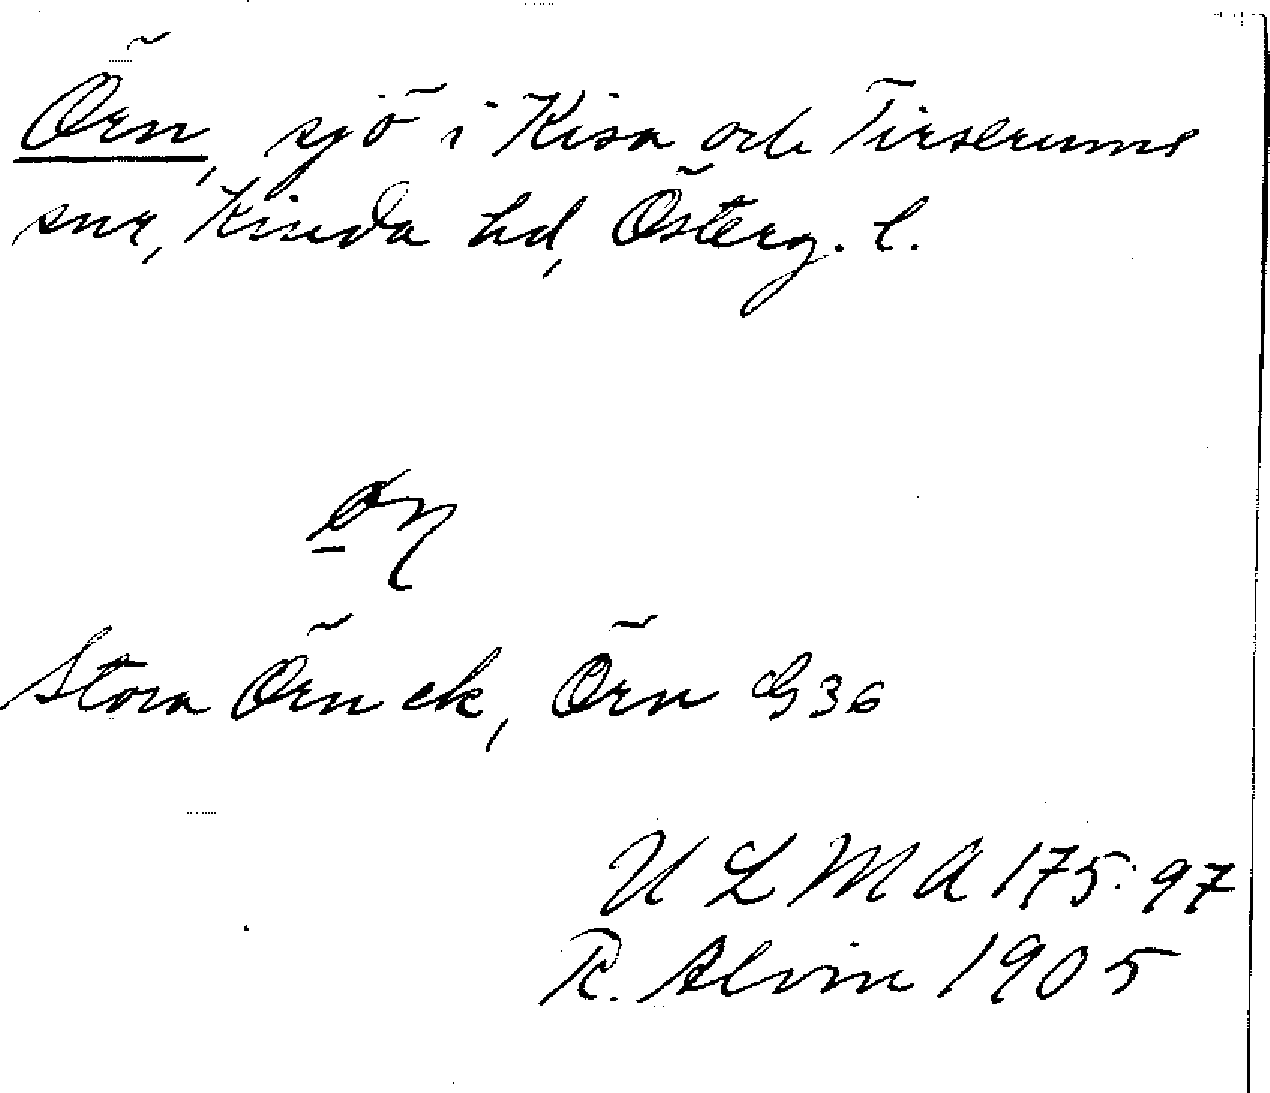 Örn, sjö i Kisa och Tirserums
snr, Kinda hd, Österg. l.
Stora Örn ek, Örn G 36
ULMA 175:97
R. Alvin 1905